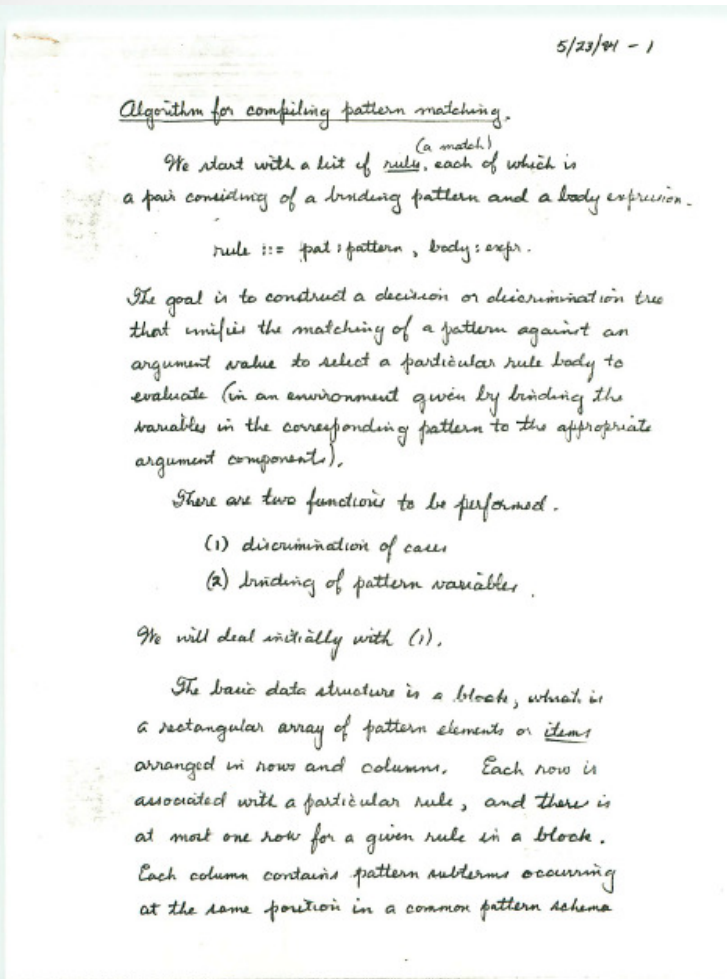 5/23/84 - 1
Algorithm for compiling pattern matching.
(a match)
We start with a list of rules, each of which is
a pair consisting of a binding pattern and a body expression.
rule ::= pat : pattern , body : expr.
The goal is to construct a decision or discrimination tree
that unifies the matching of a pattern against an
argument value to select a particular rule body to
evaluate (in an environment given by binding the
variables in the corresponding pattern to the appropriate
argument components).
There are two functions to be performed.
(1) discrimination of cases
(2) binding of pattern variables.
We will deal initially with (1).
The basic data structure is a block, which is
a rectangular array of pattern elements or items
arranged in rows and columns. Each row is
associated with a particular rule, and there is
at most one row for a given rule in a block.
Each column contains pattern subterms occurring
at the same position in a common pattern schema